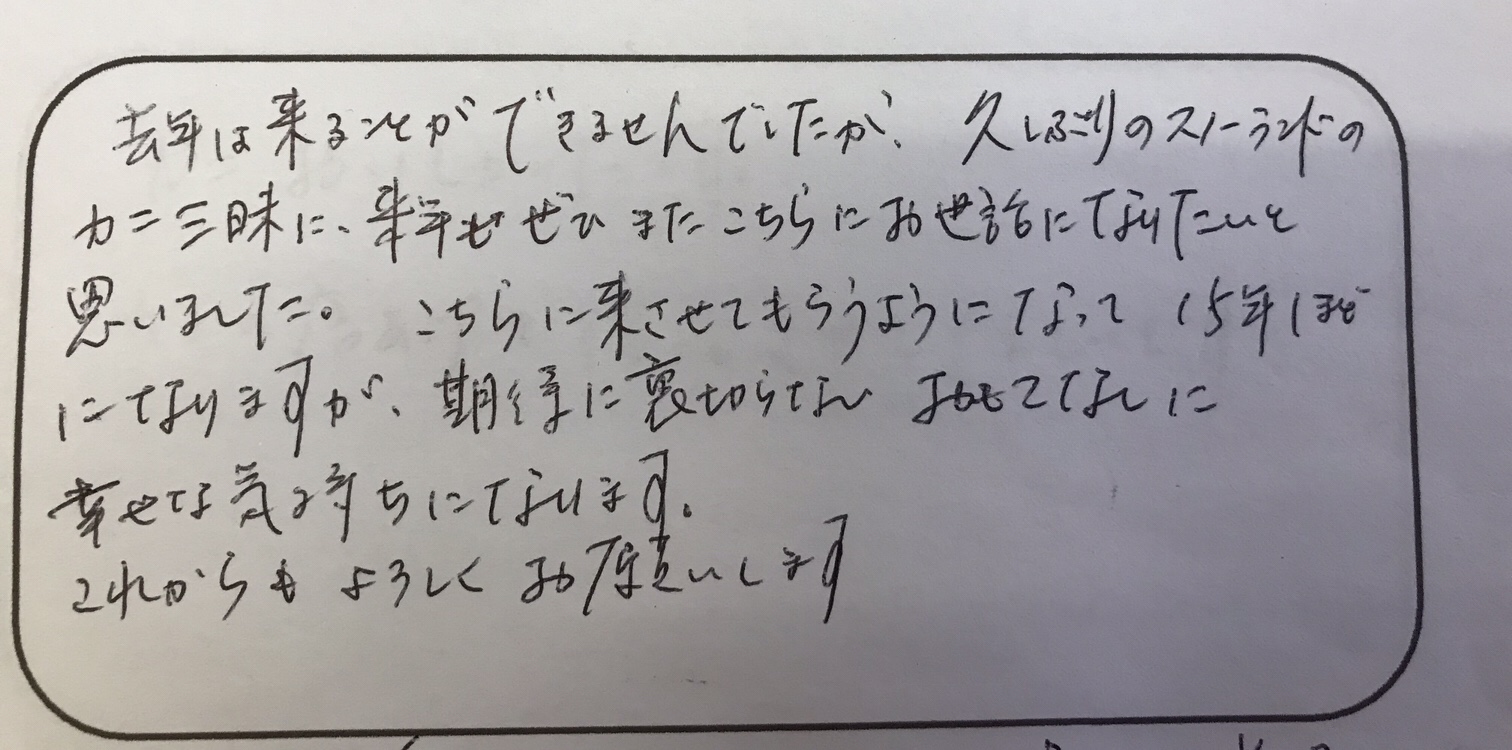 去年は来ることができませんでしたが、久しぶりのスノーランドの
カニ三昧に、来年もぜひまたこちらにお世話になりたいと
思いました。 こちらに来させてもらうようになって 15年ほど
になりますが、期待に裏切らない おもてなしに
幸せな気持ちになります。
これからも よろしく お願いします